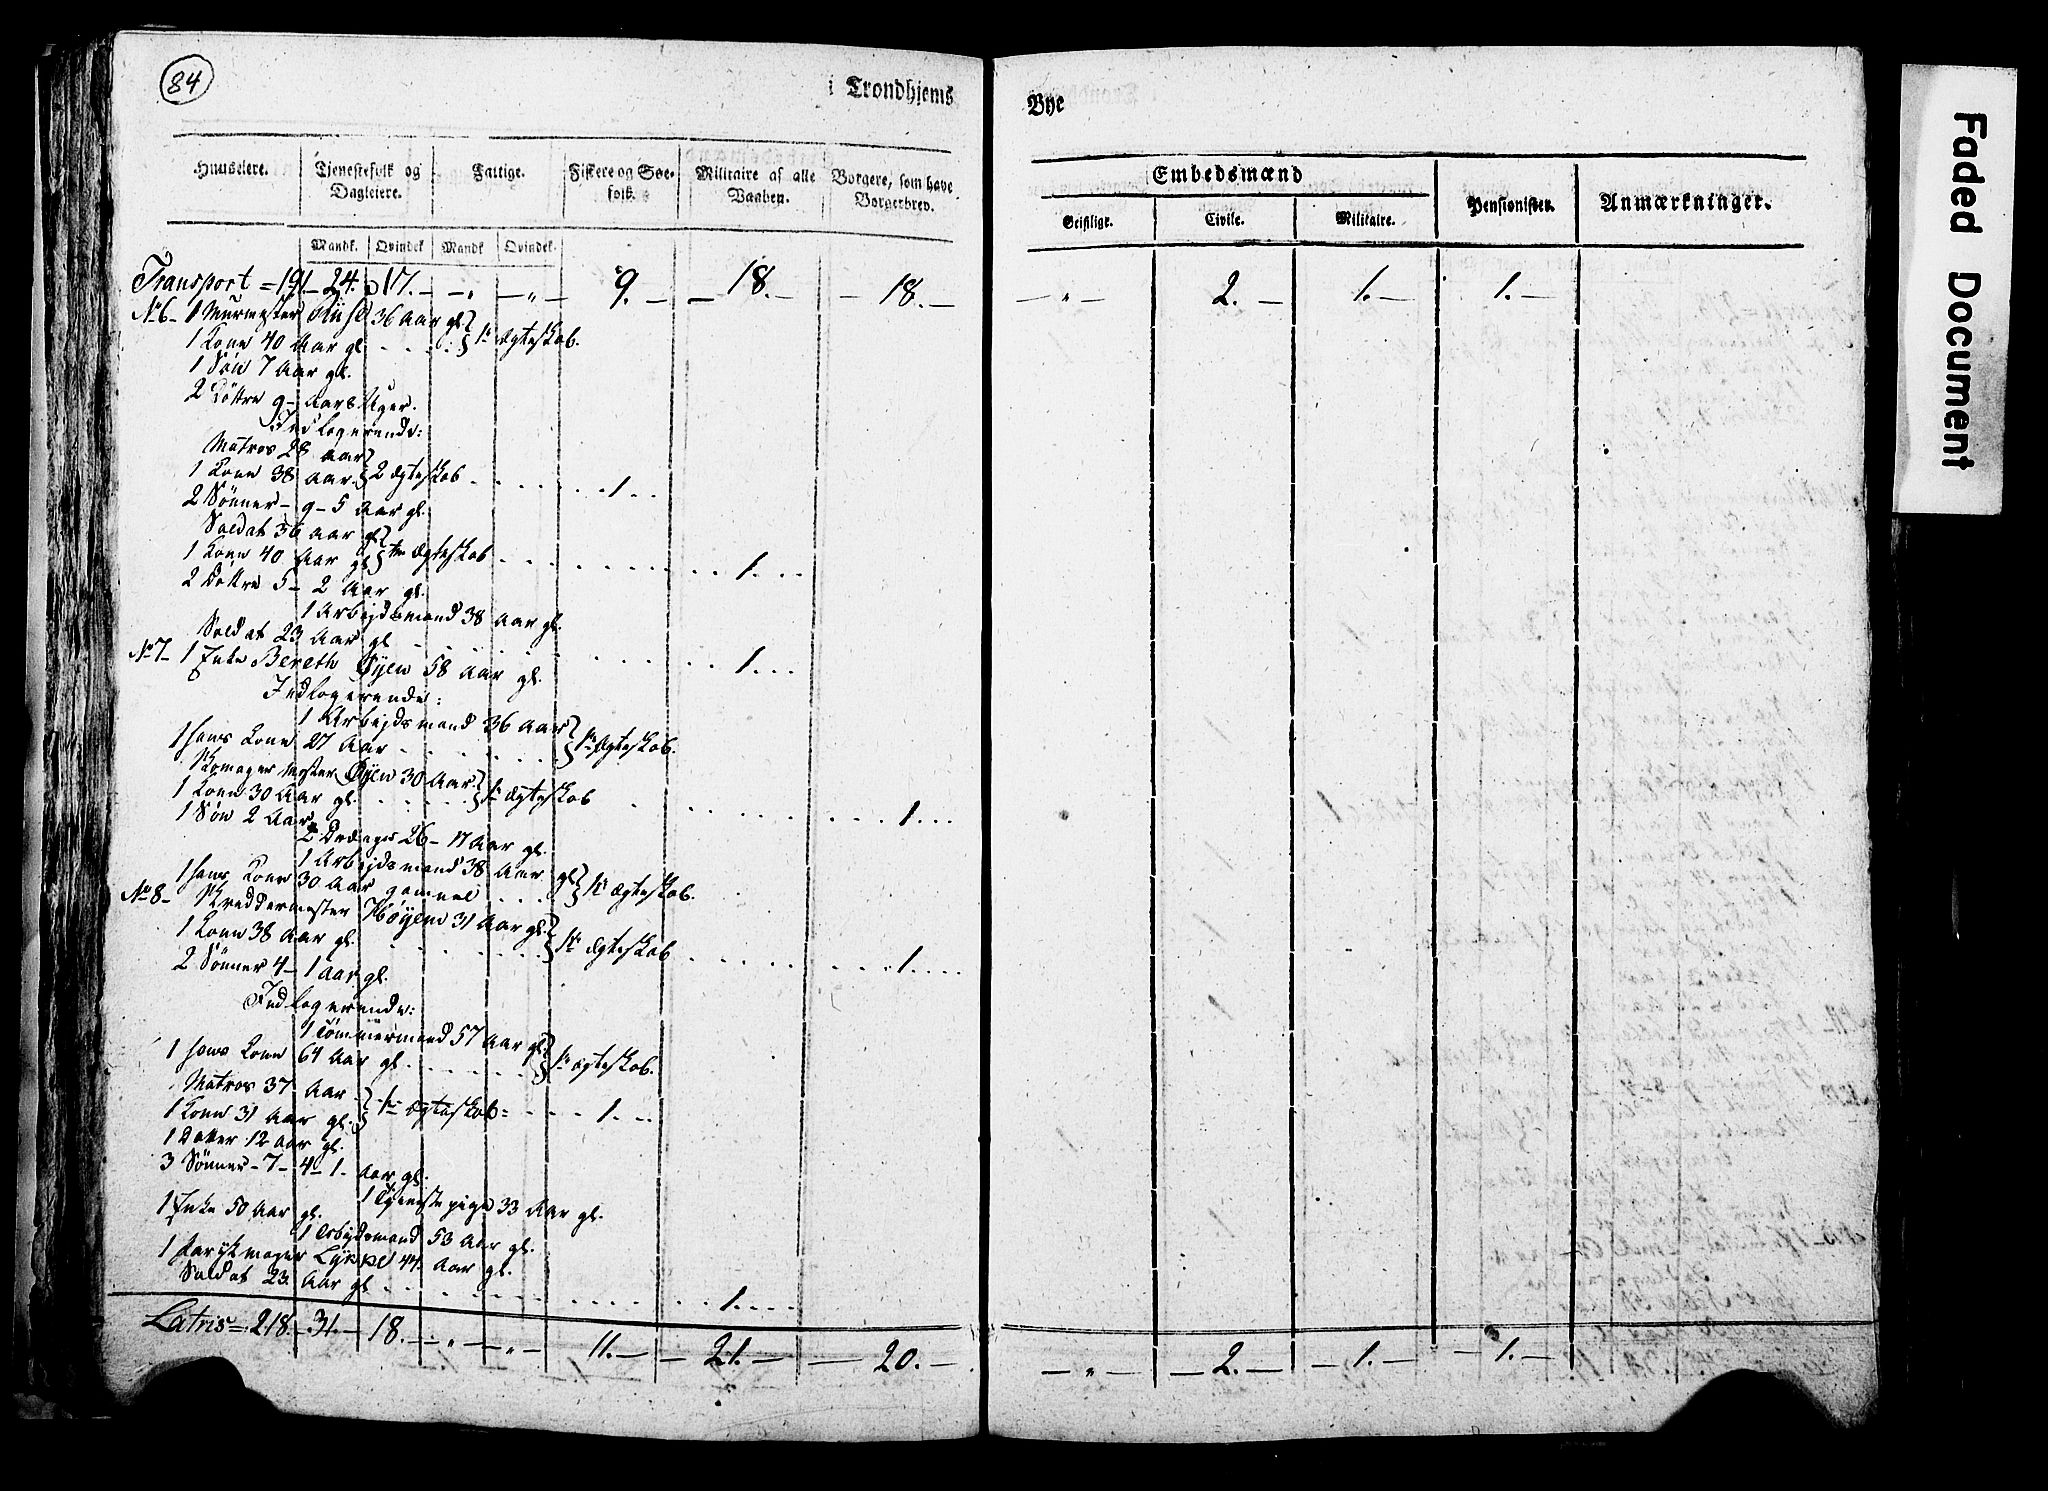 84
i Trondhjems
Bye
Huuseiere. Tjenestefolk og Dagleiere. Fattige. Fiskere og Søefolk. Militaire af alle Vaaben. Borgere, som have Borgerbrev. Embedsmænd Pensionister. Anmærkninger.
Mandk. Qvindek Mandk Qvindek. Geistlige. Civile. Militaire.
Transport = 191.- 24. 17.- -„ -„- 9.- -18.- -18.- -„- 2.- 1.- 1.-
No 6- 1 Murmester 36 Aar gl.
1 Kone 40 Aar gl. 1te Ægteskab.
1 Søn 7 Aar gl.
2 Døttre 9- Aar 5 Uger.
Indlogerende:
Matros 28 Aar
1 Kone 38 Aar. 2 Ægteskab 1
2 Sønner - 9 - 5 Aar gl.
Soldat 36 Aar gl
1 Kone 40 Aar gl 1te Ægteskab 1
2 Døttre 5 - 2 Aar gl.
1 Arbejdsmand 38 Aar gl.
Soldat 23 Aar gl 1
No 7- 1 Enke Bereth Øyen 58 Aar gl.
Indlogerende:
1 Arbejdsmand 36 Aar
1 hans Kone 27 Aar 1te Ægteskab.
Øyen 30 Aar.
1 Kone 30 Aar gl. 1te Ægteskab 1
1 Søn 2 Aar.
2 26 - 17 Aar gl.
1 Arbejdsmand 38 Aar gl
1 hans Kone 30 Aar gammel 1te Ægteskab.
No 8- Skreddermester Høyem 31 Aar gl.
1 Kone 38 Aar gl. 1te Ægteskab 1
2 Sønner 4 - 1 Aar gl.
Indlogerende:
1 Tømmermand 57 Aar gl
1 hans Kone 64 Aar gl. 1te Ægteskab.
Matros 37 Aar
1 Kone 31 Aar gl. 1te Ægteskab = 1
1 Datter 12 Aar gl.
3 Sønner - 7 - 4 - 1 - Aar gl.
1 Tjenestepige 33 Aar gl.
1 Enke 50 Aar gl.
1 Arbejdsmand 53 Aar gl.
1 Parykmager Lykke 44 Aar gl.
Soldat 23 Aar gl 1
Latris = 218.- 31.- 18.- -„- -„- 11.- -21.- -20.- -„- -2.- -1.- -1.-
Faded Document